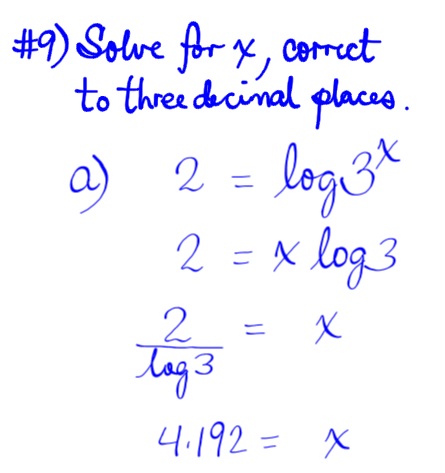 #9) Solve for x, correct
to three decimal places.
a) 2 = log3^x
2 = x log3
2/log3 = x
4.192 = x